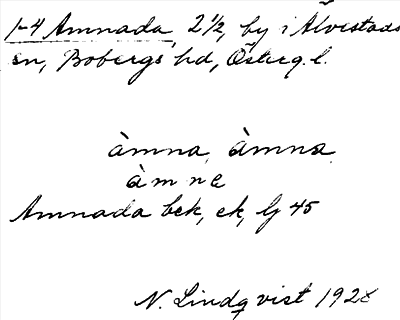 1-4 Amnada, 2 1/2, by i Älvestads
sn, Bobergs hd, Österg. l.
àmna, àmna
àmne
Amnada bek, ek, lj 45
N. Lindqvist 1928